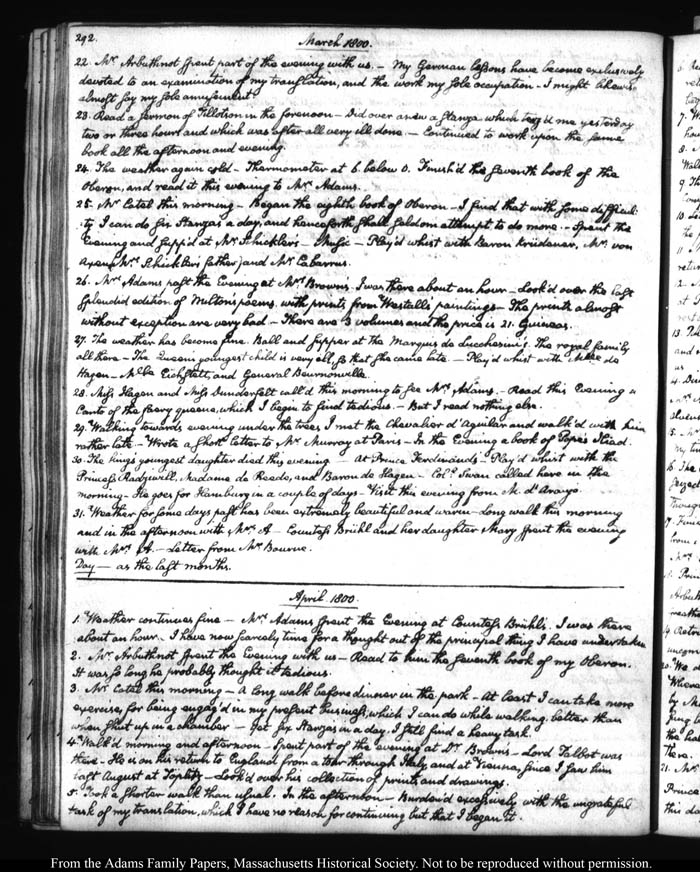 292.
March 1800.
22. Mr Arbuthnot spent part of the evening with us. — My German lessons have become exclusively
devoted to an examination of my translation, and the work my sole occupation. I might likewise
almost say my sole amusement.
23. Read a sermon of Tillotson in the forenoon — Did over anew a stanza which teized me yesterday
two or three hours and which was after all very ill done. — Continued to work upon the same
book all the afternoon and evening.
24. The weather again cold — Thermometer at 6 below 0. Finish'd the seventh book of the
Oberon, and read it this evening to Mrs Adams.
25. Mrs Catel this morning — Began the eighth book of Oberon — I find that with some difficul-
ty I can do six stanzas a day, and henceforth shall seldom attempt to do more. — Spent the
Evening and supp'd at Mr Schickler's — Music — Play'd whist with Baron Krüdener, Mr. von
(Mrs Schickler's father) and Mr Cabarrus.
26. Mrs Adams past the Evening at Mrs Brown's. I was there about an hour — Look'd over the last
splendid edition of Milton's poems, with prints from Westall's paintings — The prints almost
without exception are very bad — There are 3 volumes and the price is 21. Guineas.
27. The weather has become fine. Ball and supper at the Marquis de Lucchesini's. The royal family
all there — The Queen's youngest child is very ill, so that she came late. — Play'd whist with Mlle de
Hagen — Eichstett, and General Beurnonville.
28. Miss Hagen and Miss Dunderfelt call'd this morning to see Mrs Adams. — Read this Evening a
Canto of the faery queene, which I begin to find tedious. — But I read nothing else.
29. Walking towards evening under the trees, I met the Chevalier d'Aguilar and walk'd with him
rather late — Wrote a short letter to Mr Murray at Paris — In the Evening a book of Pope's Iliad.
30. The king's youngest daughter died this evening — At Prince Ferdinand's — Play'd whist with the
Princess Radziwill, Madame de Reede, and Baron de Hagen — Coll. Swan called here in the
morning — He goes for Hamburg in a couple of days — Visit this evening from M. d'Araujo.
31. Weather for some days past has been extremely beautiful and warm — Long walk this morning
and in the afternoon with Mrs A — Countess Brühl and her daughter Mary spent the evening
with Mrs A. — Letter from Mr Bourne.
Day — as the last months.
April 1800.
1. Weather continues fine — Mrs Adams spent the Evening at Countess Brühl's. I was there
about an hour. I have now scarcely time for a thought out of the principal thing I have undertaken
2. Mr Arbuthnot spent the Evening with us — Read to him the seventh book of my Oberon.
It was so long he probably thought it tedious.
3. Mrs Catel this morning — A long walk before dinner in the park — At least I can take more
exercise, for being engag'd in my present business, which I can do while walking, better than
when shut up in a chamber — Yet six stanzas in a day I still find a heavy task.
4. Walk'd morning and afternoon — Spent part of the evening at Dr Brown's — Lord Talbot was
there — He is on his return to England from a tour through Italy, and at Vienna, since I saw him
last August at Töplitz — Look'd over his collection of prints and drawings.
5. Took a shorter walk than usual. In the afternoon — Burden'd excessively with the ungrateful
task of my translation, which I have no reason for continuing but that I began it.
From the Adams Family Papers, Massachusetts Historical Society. Not to be reproduced without permission.